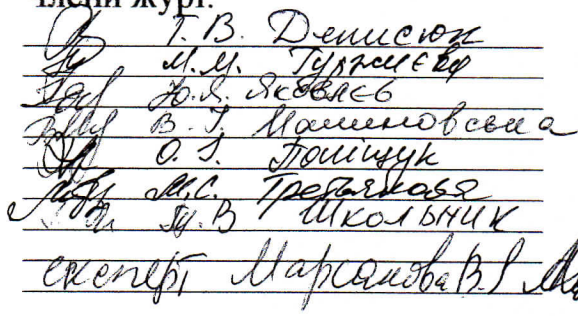 Члени журі:
Т. В. Денисюк
М. М. Гуржиєва
Ю. Я. Яковлєв
В. І. Малиновська
О. І. Поліщук
М. С. Третьякова
В Школьник
експерт Марсанова В. І